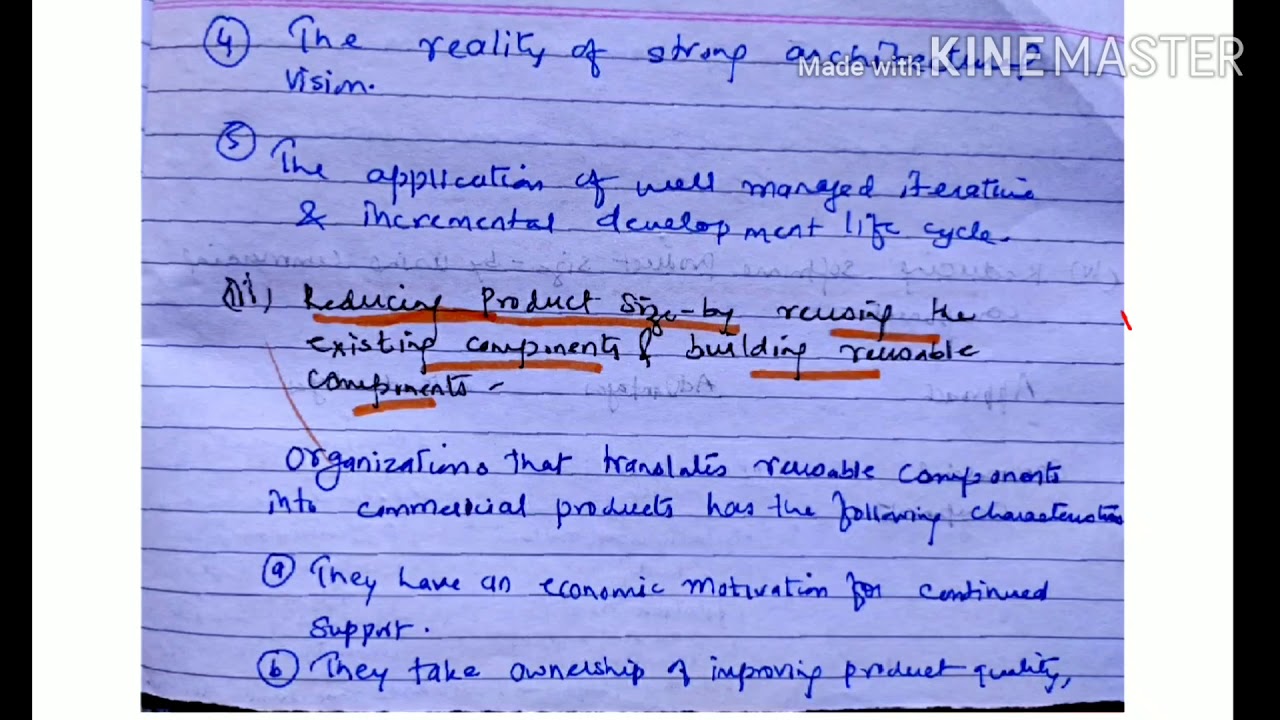 ④ The reality of strong architectural
Made with KINEMASTER
vision.
⑤ The application of well managed iterative
& incremental development life cycle.
(iii) Reducing Product Size - by reusing the
existing components & building reusable
components -
Organizations that translates reusable components
into commercial products has the following characteristics
ⓐ They have an economic motivation for continued
support.
ⓑ They take ownership of improving product quality,